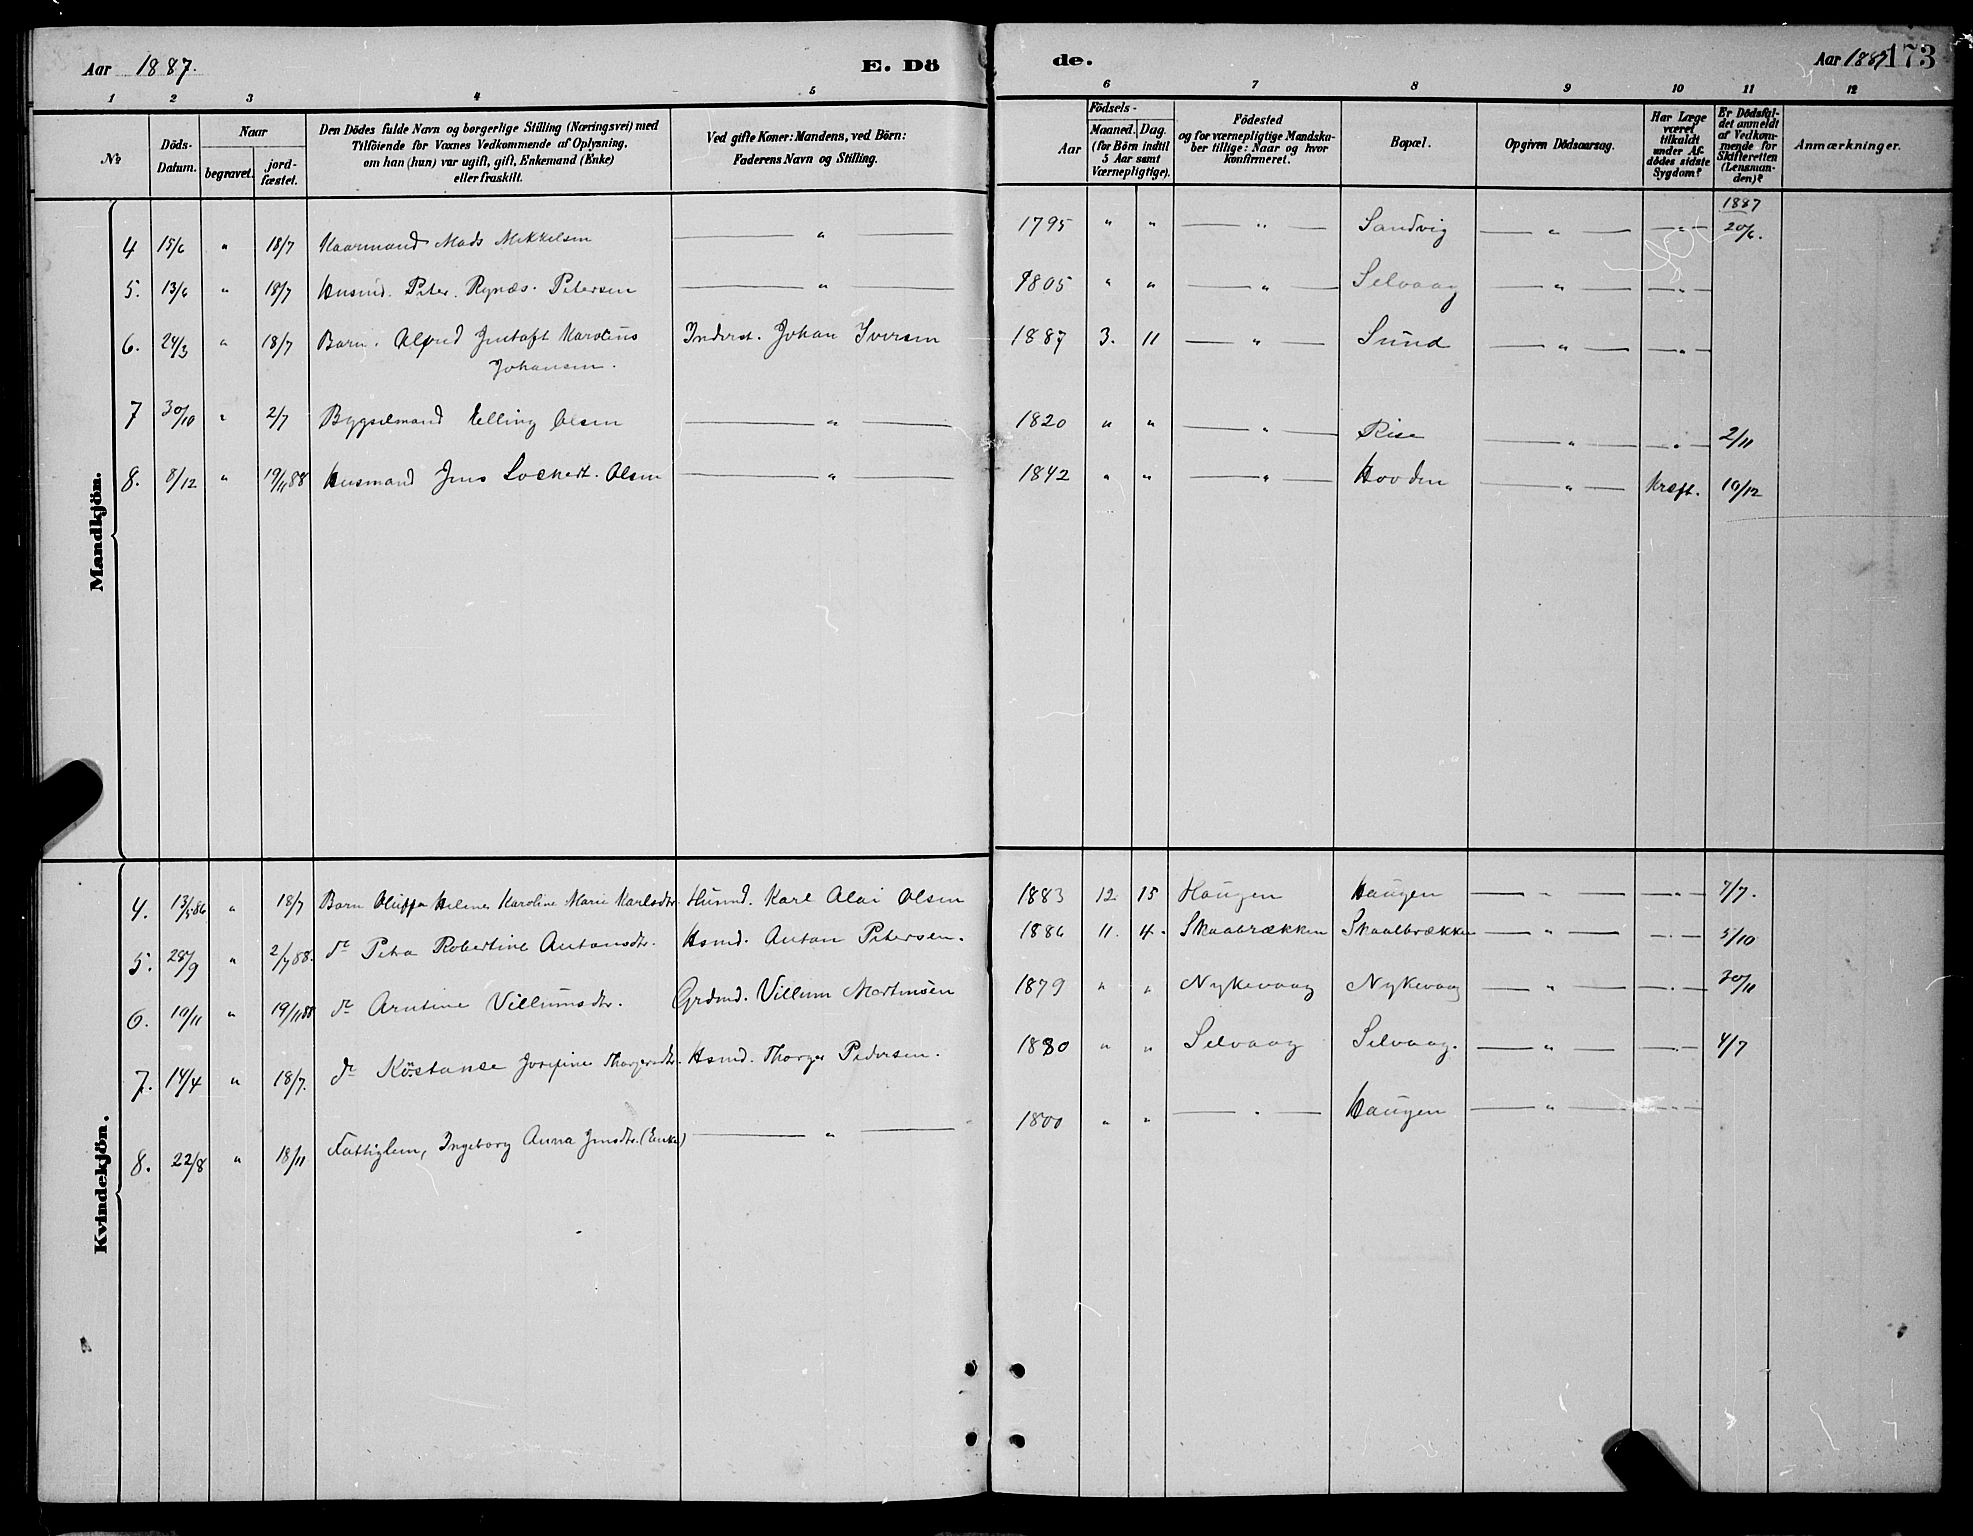 Aar 1887. E. Dö
1 2 3 4 5
No
Döds-Datum.
Naar
begravet.
jord-fæstet.
Den Dödes fulde Navn og borgerlige Stilling (Næringsvei) med
Tilföiende for Voxnes Vedkommende af Oplysning,
om han (hun) var ugift, gift, Enkemand (Enke)
eller fraskilt.
Ved gifte Koner: Mandens, ved Börn:
Faderens Navn og Stilling.
Mandkjön.
4 15/6 " 18/7 Kaarmand Mads Mikkelsen — " —
5. 13/6 " 18/7 Husmd. Peter Rynæs Petersen — " —
6. 24/3 " 18/7 Barn. Alfred Gustaft Karolius Inderst. Johan Iversen
Johansen.
7 30/10 " 2/7 Bygselmand Elling Olsen — " —
8. 8/12 " 19/11 88 Husmand Jens Lockert Olsen — " —
Kvindekjön.
4. 13/5 86 " 18/7 Barn Oluffa Helmer Karoline Marie Karlsdtr. Husmd. Karl Olai Olsen
5. 28/9 " 2/7 88. do Petra Robertine Antonsdtr. Hsmd. Anton Petersen.
6. 19/11 " 19/11 88 do Arntine Villumsdtr. Grdmd. Villum Martinsen
7. 14/4 " 18/7. do Köstanse Josefine Thorgersdtr. Hsmd. Thorger Pedersen.
8. 22/8 " 18/11 Fattiglem, Ingeborg Anna Jensdtr. (Enke) — " —
de. Aar 1887 173
6 7 8 9 10 11 12
Födsels-
Aar
Maaned. Dag.
(for Börn indtil
5 Aar samt
Værnepligtige).
Födested
og for værnepligtige Mandska-
ber tillige: Naar og hvor
konfirmeret.
Bopæl.
Opgiven Dödsaarsag.
Har Læge
været
tilkaldt
under Af-
dödes sidste
Sygdom?
Er Dödsfal-
det anmeldt
af Vedkom-
mende for
Skifteretten
(Lensman-
den)?
Anmærkninger.
1887
1795 " " — " — Sandvig — " — — " — 20/6.
1805 " " — " — Selvaag — " — — " —
1887 3. 11 — " — Sund — " — — " —
1820 " " — " — Rise — " — — " — 2/11
1842 " " — " — Hovden — " — Kræft. 10/12
1883 12. 15 Haugen Haugen — " — — " — 7/7.
1886 11. 4. Skaabrækken Skaalbrækken — " — — " — 5/10
1879 " " Nykevaag Nykevaag — " — — " — 30/11
1880 " " Selvaag Selvaag. — " — — " — 4/7
1800 " " — " — Haugen — " — — " —